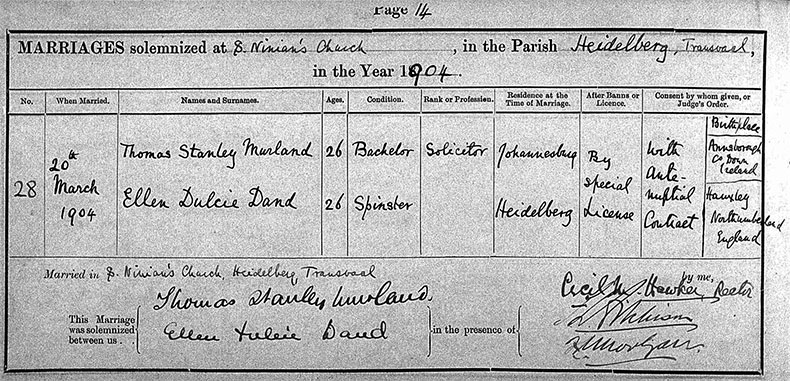 Page 14
MARRIAGES solemnized at S. Ninian's Church, in the Parish Heidelberg, Transvaal,
in the Year 1904.
No. When Married. Names and Surnames. Ages. Condition. Rank or Profession. Residence at the Time of Marriage. After Banns or Licence. Consent by whom given, or Judge's Order.
Birthplace
28 20th March 1904
Thomas Stanley Murland 26 Bachelor Solicitor Johannesburg By special License With Ante-nuptial Contract Annsborough Co. Down Ireland
Ellen Dulcie Dand 26 Spinster Heidelberg Northumberland England
Married in S. Ninian's Church, Heidelberg, Transvaal
by me,
Cecil Hawker, Rector
This Marriage was solemnized between us.
Thomas Stanley Murland.
Ellen Dulcie Dand
in the presence of